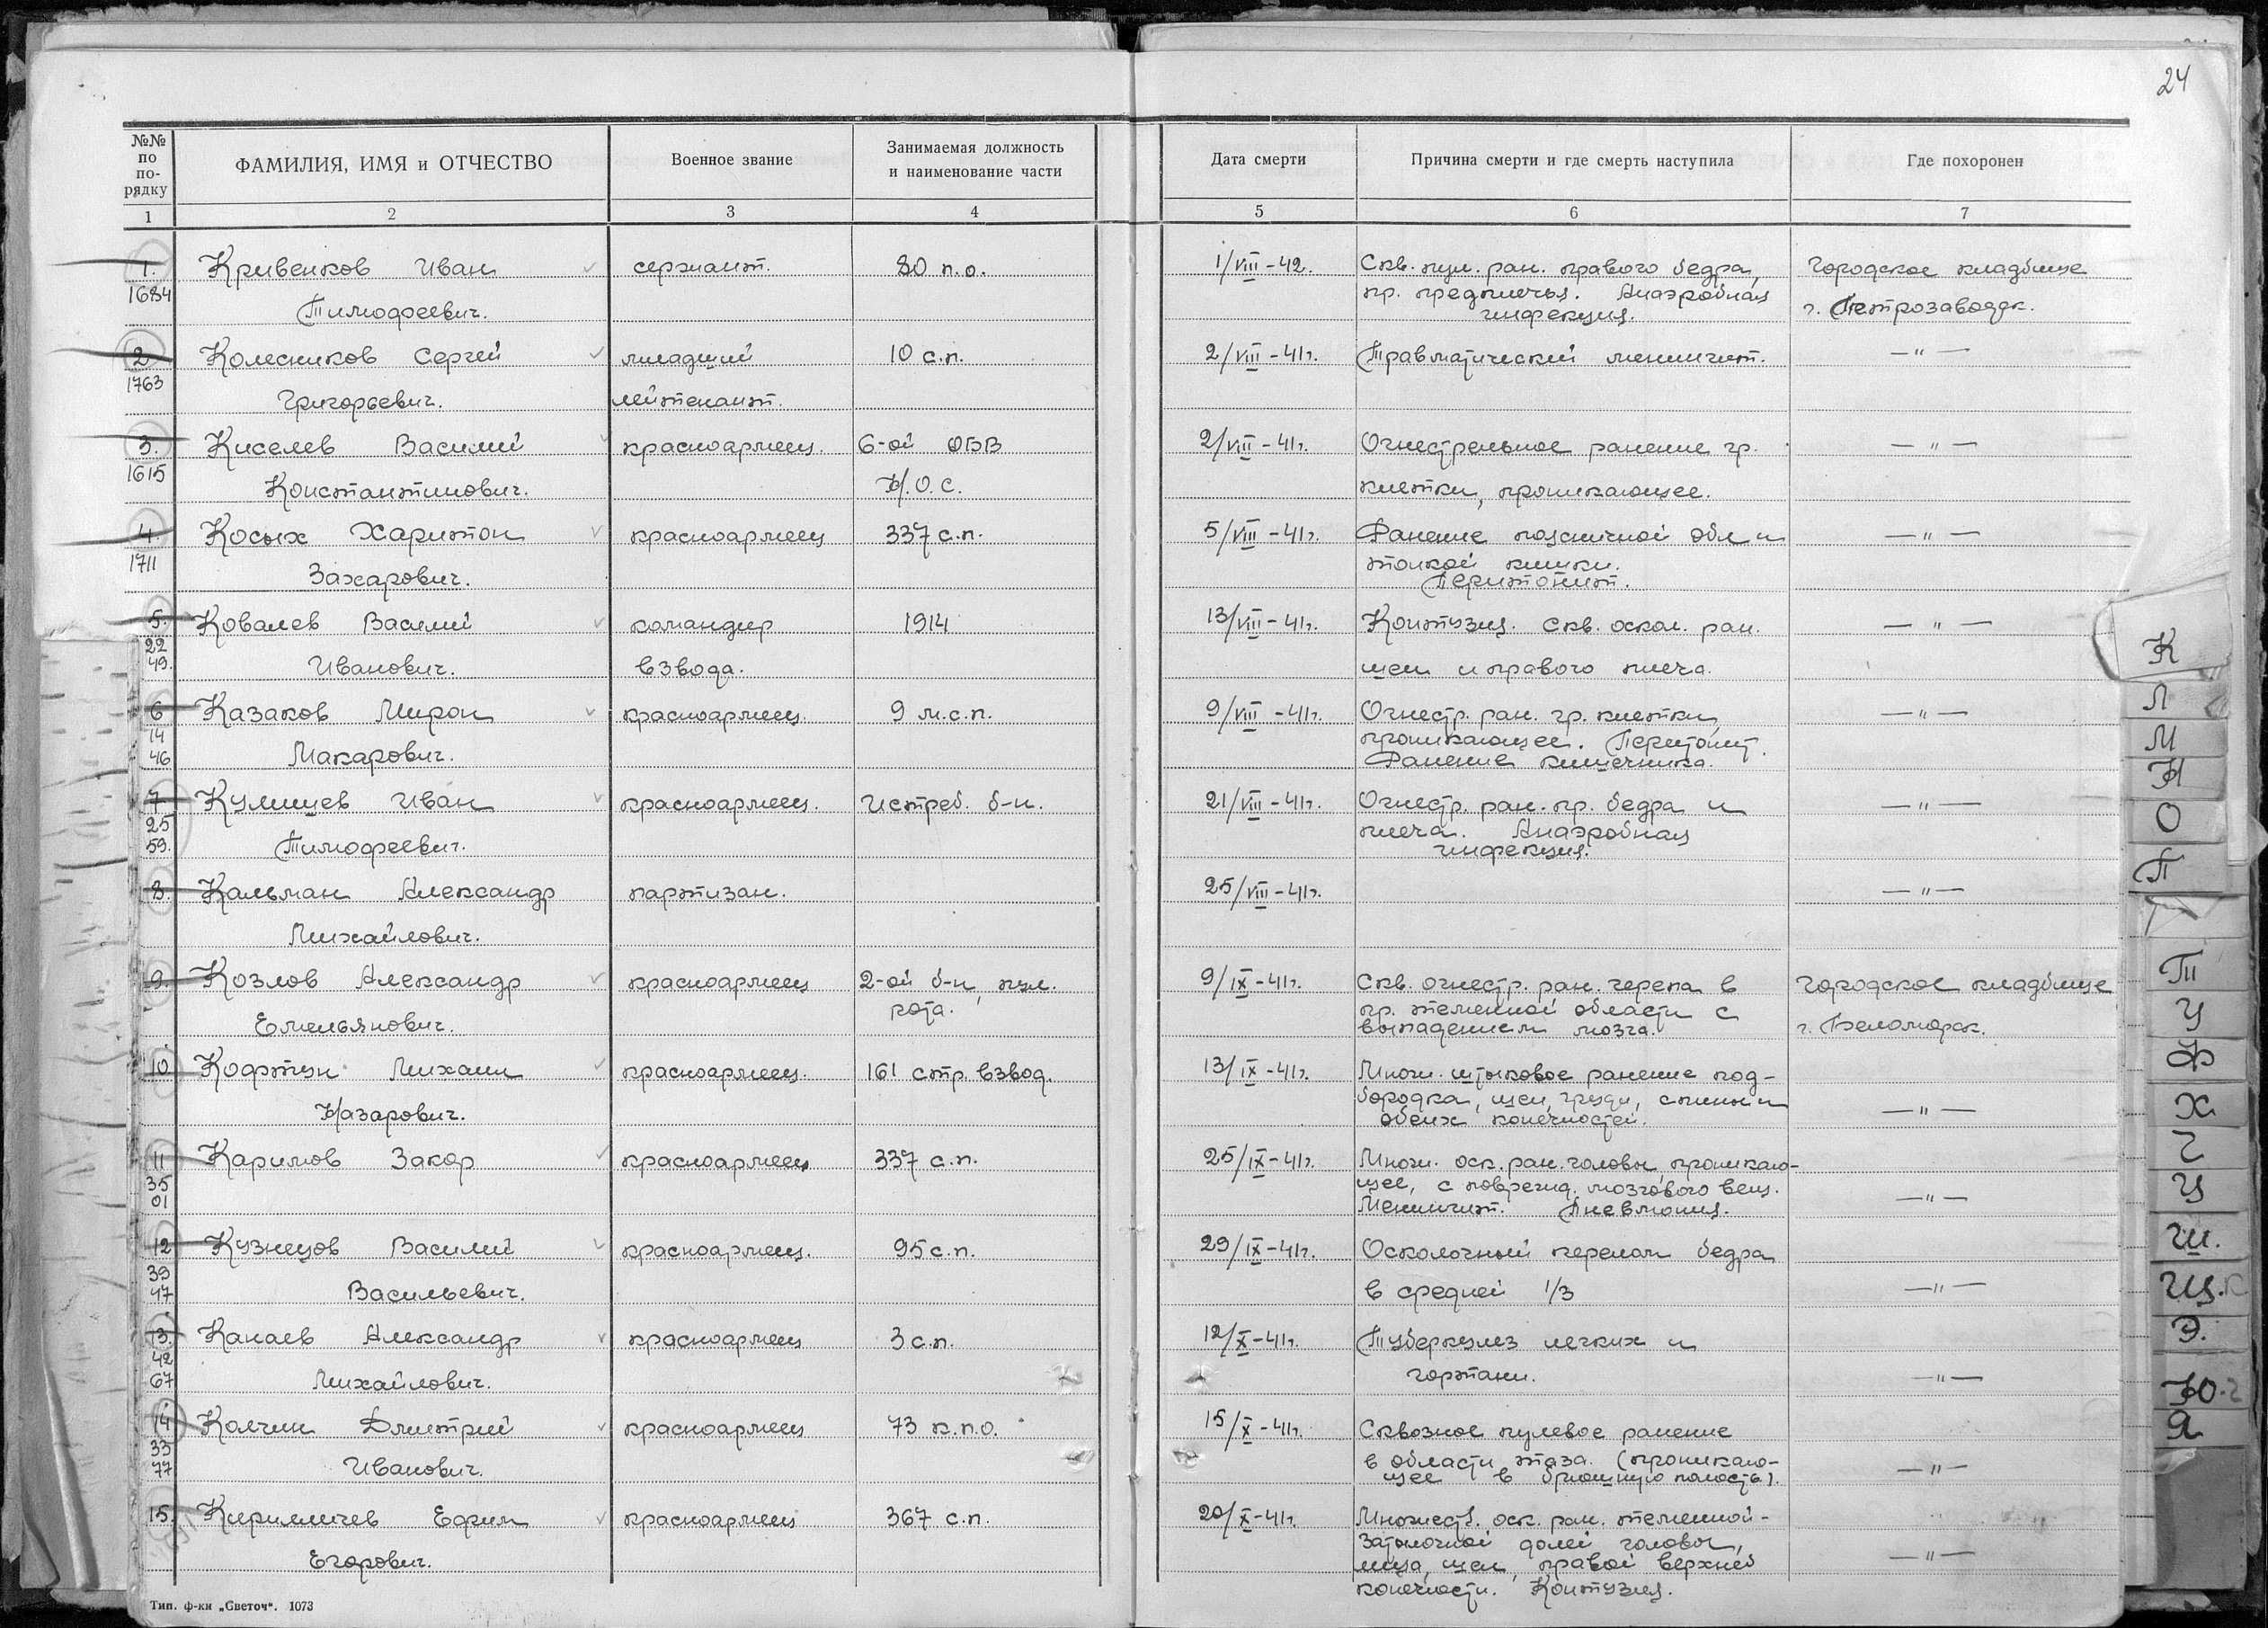 24
№№ по по- рядку
ФАМИЛИЯ, ИМЯ и ОТЧЕСТВО
Военное звание
Занимаемая должность и наименование части
Дата смерти
Причина смерти и где смерть наступила
Где похоронен
1 2 3 4 5 6 7
1. Кривенков Иван сержант. 80 п.о. 1/VIII-42. Скв. пул. ран. правого бедра, Городское кладбище
1684 Тимофеевич. пр. предплечья. Анаэробная г. Петрозаводск.
инфекция.
2. Колесников Сергей младший 10 с.п. 2/VIII-41г. Травматический менингит. —"—
1763 Григорьевич. лейтенант.
3. Киселев Василий красноармеец. 6-ой ОВВ 2/VIII-41г. Огнестрельное ранение гр. —"—
1615 Константинович. Н.О.С. клетки, проникающее.
4. Косых Харитон красноармеец 337 с.п. 5/VIII-41г. Ранение поясничной обл и —"—
1711 Захарович. тонкой кишки.
Перитонит.
5. Ковалев Василий командир 1914 13/VIII-41г. Контузия. Скв. оскол. ран. —"—
22 49. Иванович. взвода. шеи и правого плеча.
6 Казаков Мирон красноармеец. 9 м.с.п. 9/VIII-41г. Огнестр. ран. гр. клетки, —"—
14 46 Макарович. проникающее. Перитонит.
Ранение кишечника.
7 Кулишев Иван красноармеец. Истреб. б-н. 21/VIII-41г. Огнестр. ран. пр. бедра и —"—
25 59. Тимофеевич. плеча. Анаэробная
инфекция.
8. Кальман Александр партизан. 25/VIII-41г. —"—
Михайлович.
9. Козлов Александр красноармеец 2-ой б-н, пул. 9/IX-41г. Скв. огнестр. ран. черепа в Городское кладбище
Емельянович. рота. пр. теменной области с г. Беломорск.
выпадением мозга.
10 Кофтун Михаил красноармеец. 161 стр. взвод. 13/IX-41г. Множ. штыковое ранение под-
Назарович. бородка, шеи, груди, спины и —"—
обеих конечностей.
11 Каримов Закор красноармеец 337 с.п. 25/IX-41г. Множ. оск. ран. головы, проникаю-
35 01 щее, с поврежд. мозгового вещ. —"—
Менингит. Пневмония.
12 Кузнецов Василий красноармеец. 95 с.п. 29/IX-41г. Осколочный перелом бедра
39 47 Васильевич. в средней 1/3 —"—
13. Канаев Александр красноармеец 3 с.п. 12/X-41г. Туберкулез легких и
42 67 Михайлович. гортани. —"—
14 Колчин Дмитрий красноармеец 73 к.п.о. 15/X-41г. Сквозное пулевое ранение
33 77 Иванович. в области таза. (проникаю- —"—
щее в брюшную полость).
15. Кириличев Ефим красноармеец 367 с.п. 20/X-41г. Множеств. оск. ран. теменной-
Егорович. затылочной долей головы,
лица, шеи, правой верхней —"—
конечности. Контузия.
Тип. ф-ки „Светоч“. 1073
К
Л
М
Н
О
П
Т
У
Ф
Х
Ч
Ц
Ш.
Щ.
Э.
Ю
Я